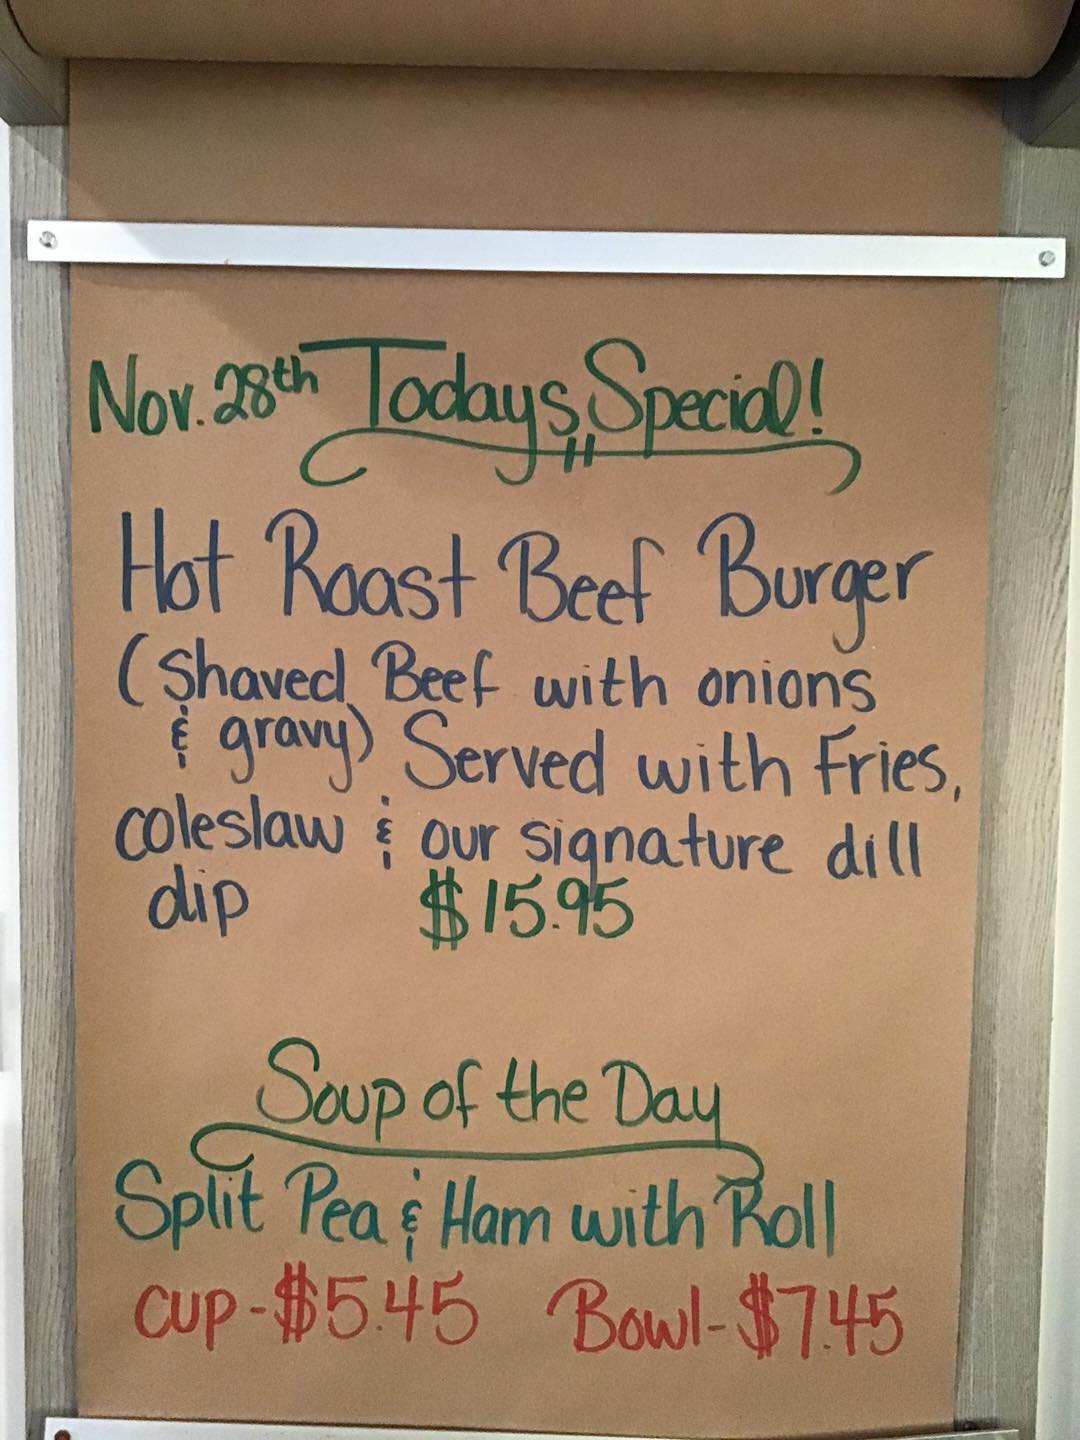 Nov. 28th Todays Special!
Hot Roast Beef Burger
(Shaved Beef with onions
& gravy) Served with Fries,
coleslaw & our signature dill
dip $15.95
Soup of the Day
Split Pea & Ham with Roll
cup - $5.45 Bowl - $7.45